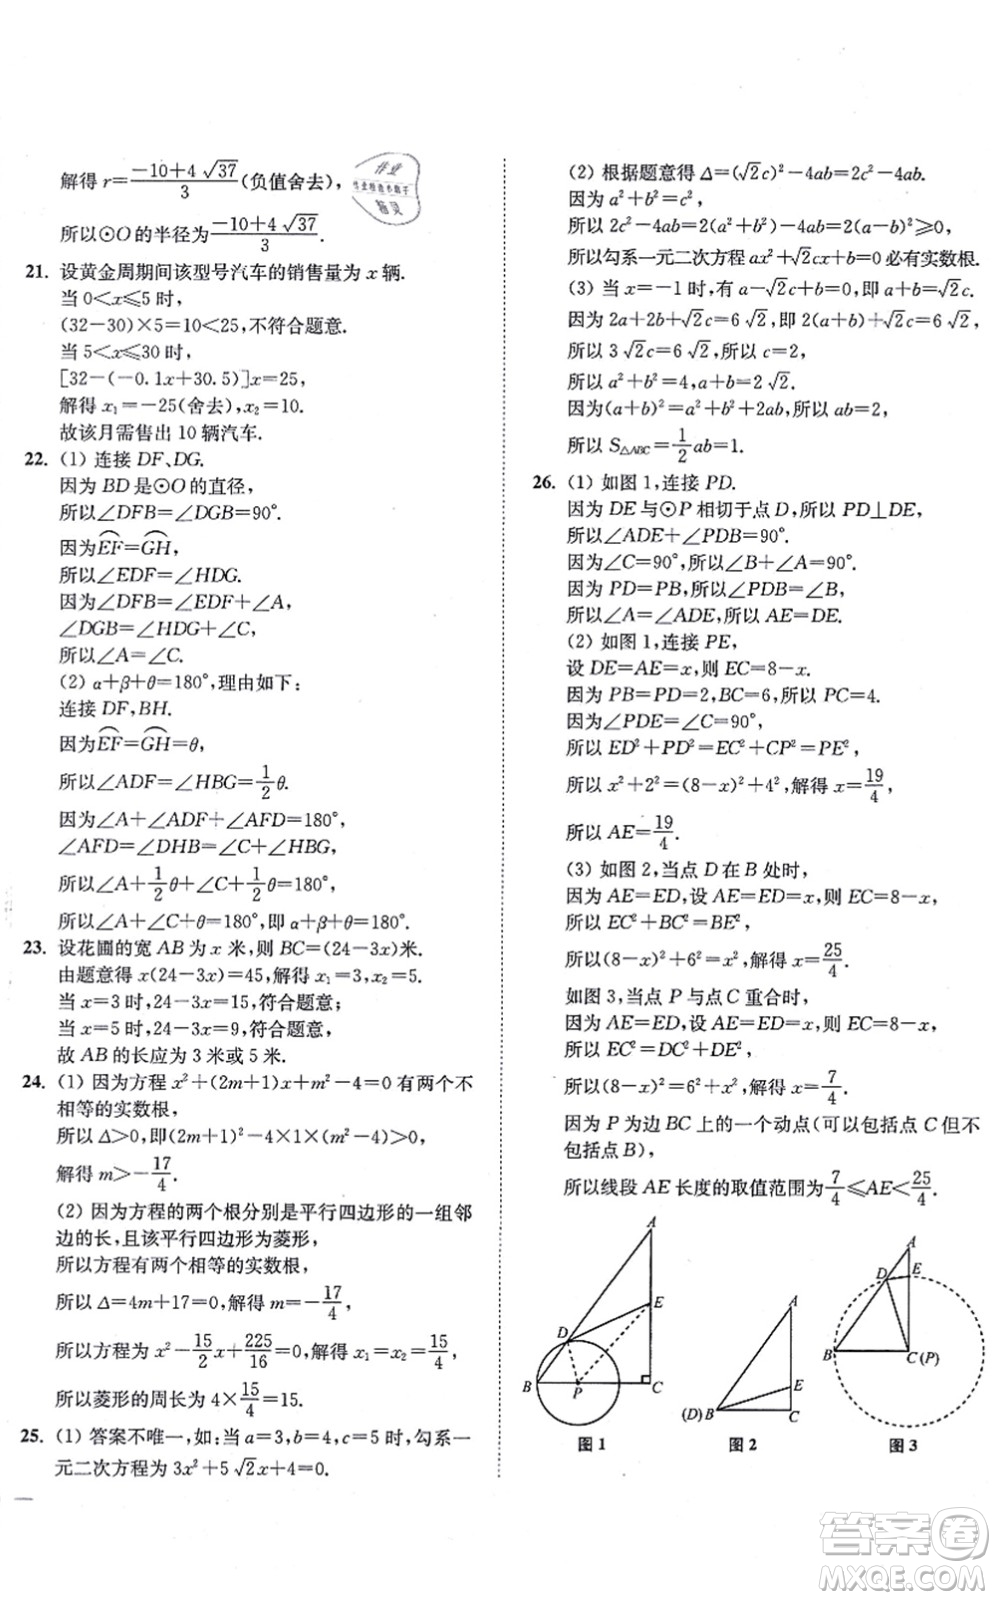 解得 r=(-10+4√37)/3(负值舍去),
所以⊙O的半径为(-10+4√37)/3.
21. 设黄金周期间该型号汽车的销售量为 x 辆.
当 0<x≤5 时,
(32-30)×5=10<25,不符合题意.
当 5<x≤30 时,
[32-(-0.1x+30.5)]x=25,
解得 x₁=-25(舍去),x₂=10.
故该月需售出 10 辆汽车.
22. (1) 连接 DF、DG.
因为 BD 是⊙O 的直径,
所以∠DFB=∠DGB=90°.
因为⌒EF=⌒GH,
所以∠EDF=∠HDG.
因为∠DFB=∠EDF+∠A,
∠DGB=∠HDG+∠C,
所以∠A=∠C.
(2) α+β+θ=180°,理由如下:
连接 DF,BH.
因为⌒EF=⌒GH=θ,
所以∠ADF=∠HBG=1/2θ.
因为∠A+∠ADF+∠AFD=180°,
∠AFD=∠DHB=∠C+∠HBG,
所以∠A+1/2θ+∠C+1/2θ=180°,
所以∠A+∠C+θ=180°,即 α+β+θ=180°.
23. 设花圃的宽 AB 为 x 米,则 BC=(24-3x)米.
由题意得 x(24-3x)=45,解得 x₁=3,x₂=5.
当 x=3 时,24-3x=15,符合题意;
当 x=5 时,24-3x=9,符合题意,
故 AB 的长应为 3 米或 5 米.
24. (1) 因为方程 x²+(2m+1)x+m²-4=0 有两个不
相等的实数根,
所以 Δ>0,即(2m+1)²-4×1×(m²-4)>0,
解得 m>-17/4.
(2) 因为方程的两个根分别是平行四边形的一组邻
边的长,且该平行四边形为菱形,
所以方程有两个相等的实数根,
所以 Δ=4m+17=0,解得 m=-17/4,
所以方程为 x²-15/2x+225/16=0,解得 x₁=x₂=15/4,
所以菱形的周长为 4×15/4=15.
25. (1) 答案不唯一,如:当 a=3,b=4,c=5 时,勾系一
元二次方程为 3x²+5√2x+4=0.
(2) 根据题意得 Δ=(√2c)²-4ab=2c²-4ab.
因为 a²+b²=c²,
所以 2c²-4ab=2(a²+b²)-4ab=2(a-b)²≥0,
所以勾系一元二次方程 ax²+√2cx+b=0 必有实数根.
(3) 当 x=-1 时,有 a-√2c+b=0,即 a+b=√2c.
因为 2a+2b+√2c=6√2,即 2(a+b)+√2c=6√2,
所以 3√2c=6√2,所以 c=2,
所以 a²+b²=c²=4,a+b=2√2.
因为(a+b)²=a²+b²+2ab,所以 ab=2,
所以 S△ABC=1/2ab=1.
26. (1) 如图 1,连接 PD.
因为 DE 与⊙P 相切于点 D,所以 PD⊥DE,
所以∠ADE+∠PDB=90°.
因为∠C=90°,所以∠B+∠A=90°.
因为 PD=PB,所以∠PDB=∠B,
所以∠A=∠ADE,所以 AE=DE.
(2) 如图 1,连接 PE,
设 DE=AE=x,则 EC=8-x.
因为 PB=PD=2,BC=6,所以 PC=4.
因为∠PDE=∠C=90°,
所以 ED²+PD²=EC²+CP²=PE²,
所以 x²+2²=(8-x)²+4²,解得 x=19/4,
所以 AE=19/4.
(3) 如图 2,当点 D 在 B 处时,
因为 AE=ED,设 AE=ED=x,则 EC=8-x,
所以 EC²+BC²=BE²,
所以(8-x)²+6²=x²,解得 x=25/4.
如图 3,当点 P 与点 C 重合时,
因为 AE=ED,设 AE=ED=x,则 EC=8-x,
所以 EC²=DC²+DE²,
所以(8-x)²=6²+x²,解得 x=7/4.
因为 P 为边 BC 上的一个动点(可以包括点 C 但不
包括点 B),
所以线段 AE 长度的取值范围为7/4≤AE<25/4.
A
E
D
B
P
C
图 1
A
E
(D)B
C
图 2
A
D
E
B
C(P)
图 3
答案卷
MXQE.COM